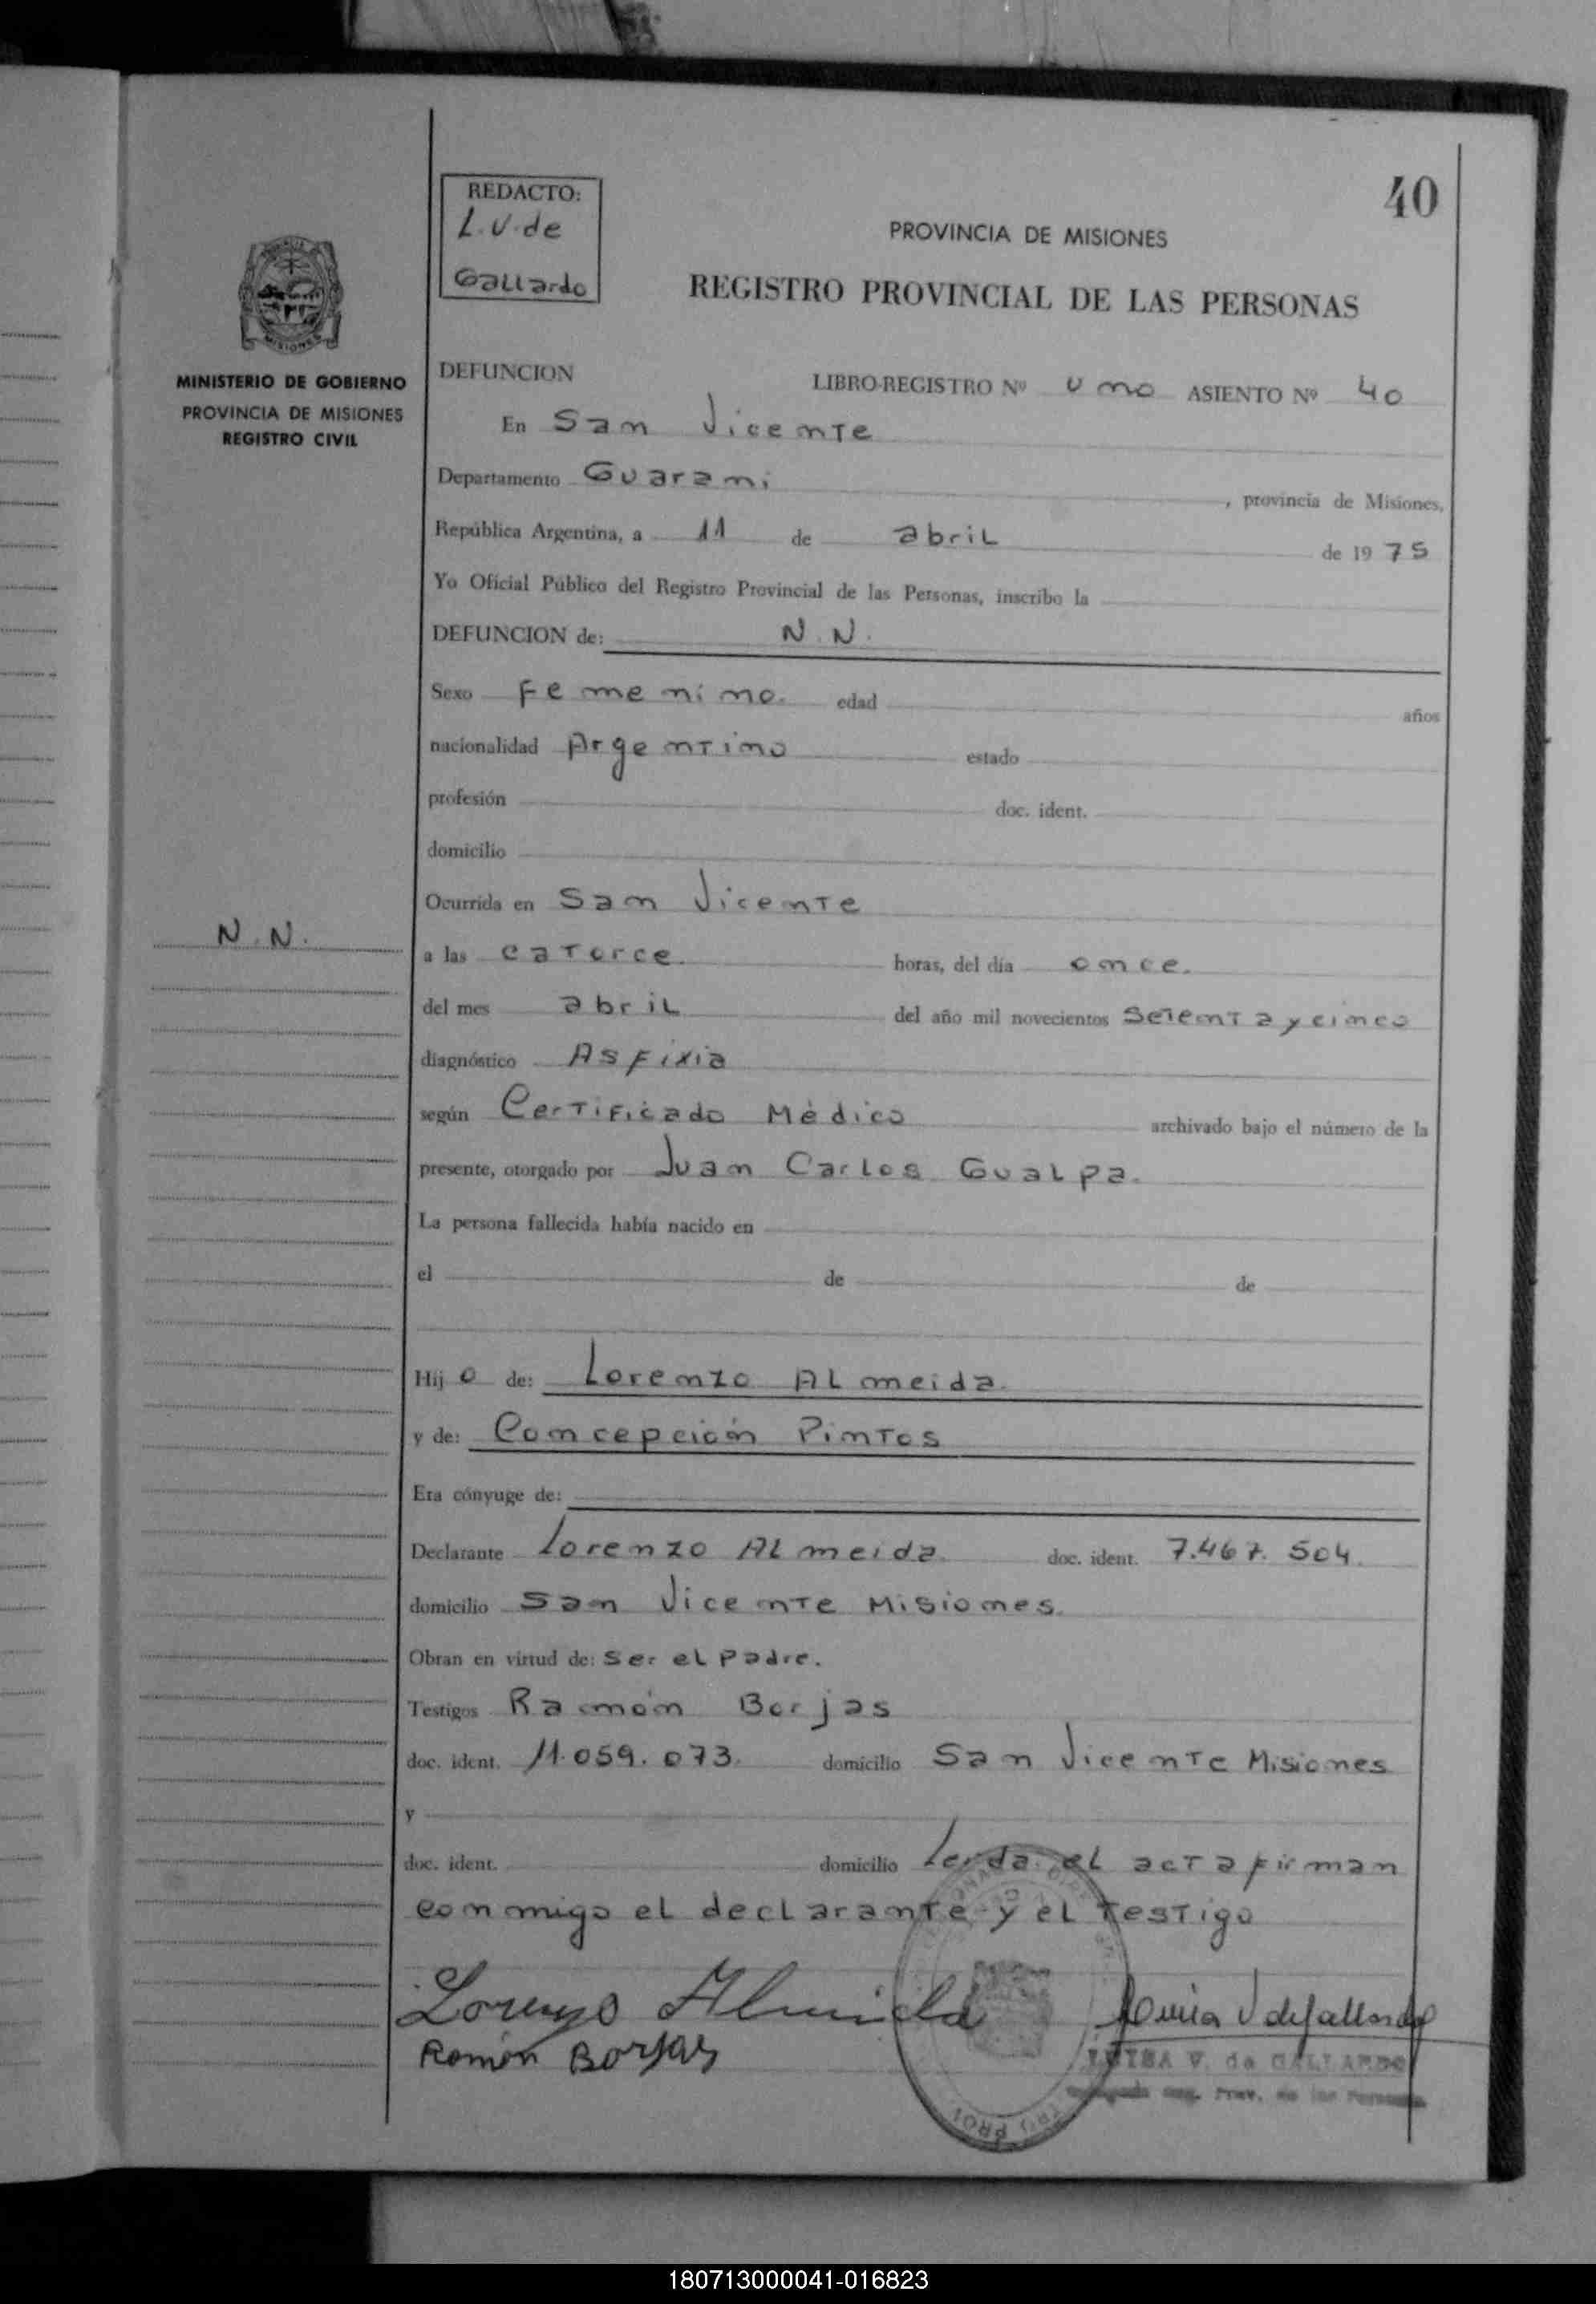 40
REDACTO:
L.V. de
Gallardo
PROVINCIA DE MISIONES
REGISTRO PROVINCIAL DE LAS PERSONAS
MISIONES
MINISTERIO DE GOBIERNO
PROVINCIA DE MISIONES
REGISTRO CIVIL
DEFUNCION LIBRO-REGISTRO Nº uno ASIENTO Nº 40
En San Vicente
Departamento Guarani, provincia de Misiones,
República Argentina, a 11 de abril de 1975
Yo Oficial Público del Registro Provincial de las Personas, inscribo la
DEFUNCION de: N.N.
Sexo Femenino. edad años
nacionalidad Argentino estado
profesión doc. ident.
domicilio
Ocurrida en San Vicente
N.N.
a las catorce. horas, del día once.
del mes abril del año mil novecientos setenta y cinco
diagnóstico Asfixia
según Certificado Médico archivado bajo el número de la
presente, otorgado por Juan Carlos Gualpa.
La persona fallecida había nacido en
el de de
Hijo de: Lorenzo Almeida.
y de: Concepción Pintos
Era cónyuge de:
Declarante Lorenzo Almeida. doc. ident. 7.467.504.
domicilio San Vicente Misiones.
Obran en virtud de: Ser el Padre.
Testigos Ramón Borjas
doc. ident. 11.059.073. domicilio San Vicente Misiones
y
doc. ident. domicilio Leida el acta firman
conmigo el declarante y el testigo
Lorenzo Almeida
Ramón Borjas
LUISA V. de GALLARDO
180713000041-016823